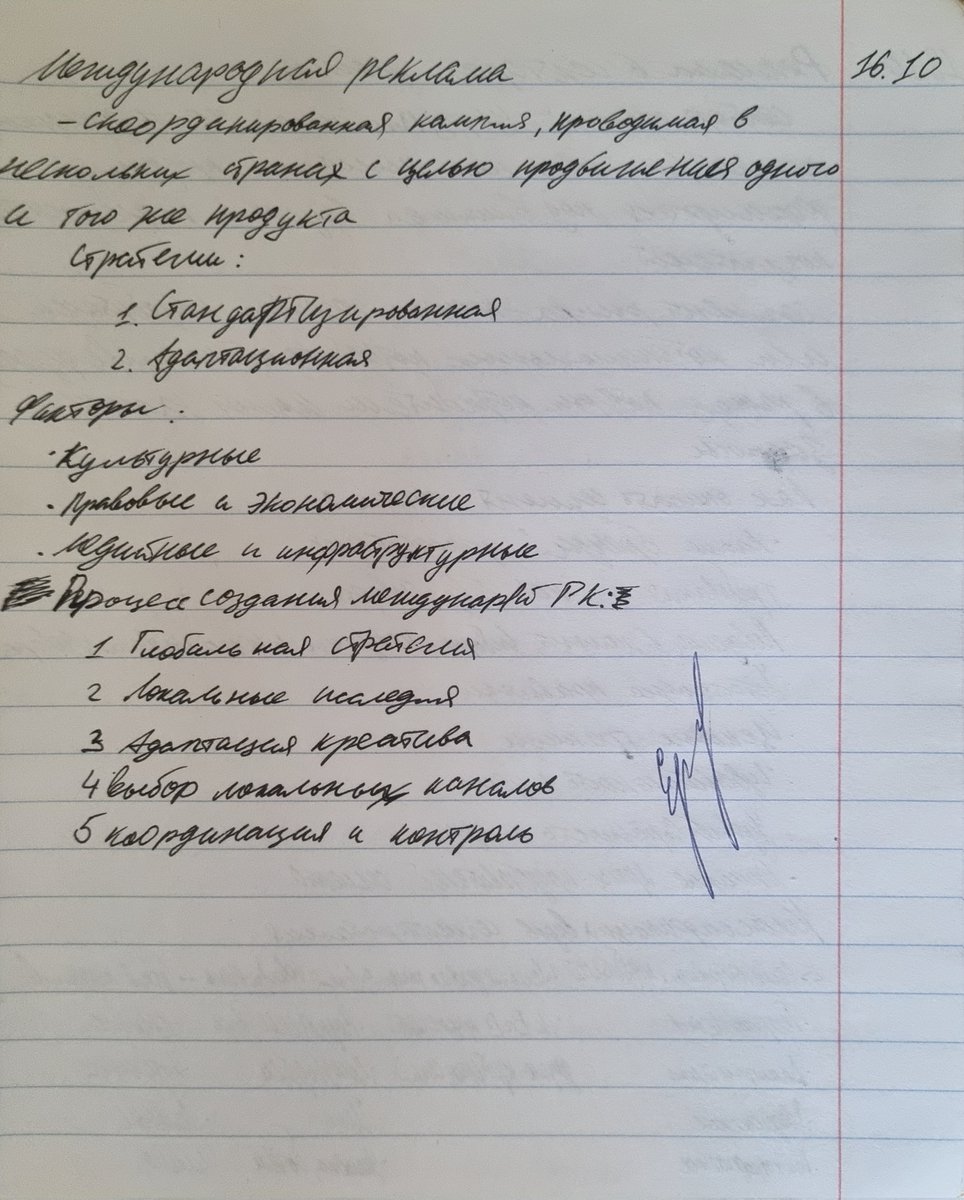 Международная реклама 16.10
– скоординированная кампия, проводимая в
нескольких странах с целью продвижения одного
и того же продукта
Стратегии:
1. Стандартизированная
2. Адаптационная
Факторы:
· Культурные
· Правовые и экономические
· Медийные и инфраструктурные
Процесс создания междунар РК:
1 Глобальная стратегия
2 Локальные исследия
3 Адаптация креатива
4 выбор локальных каналов
5 координация и контроль